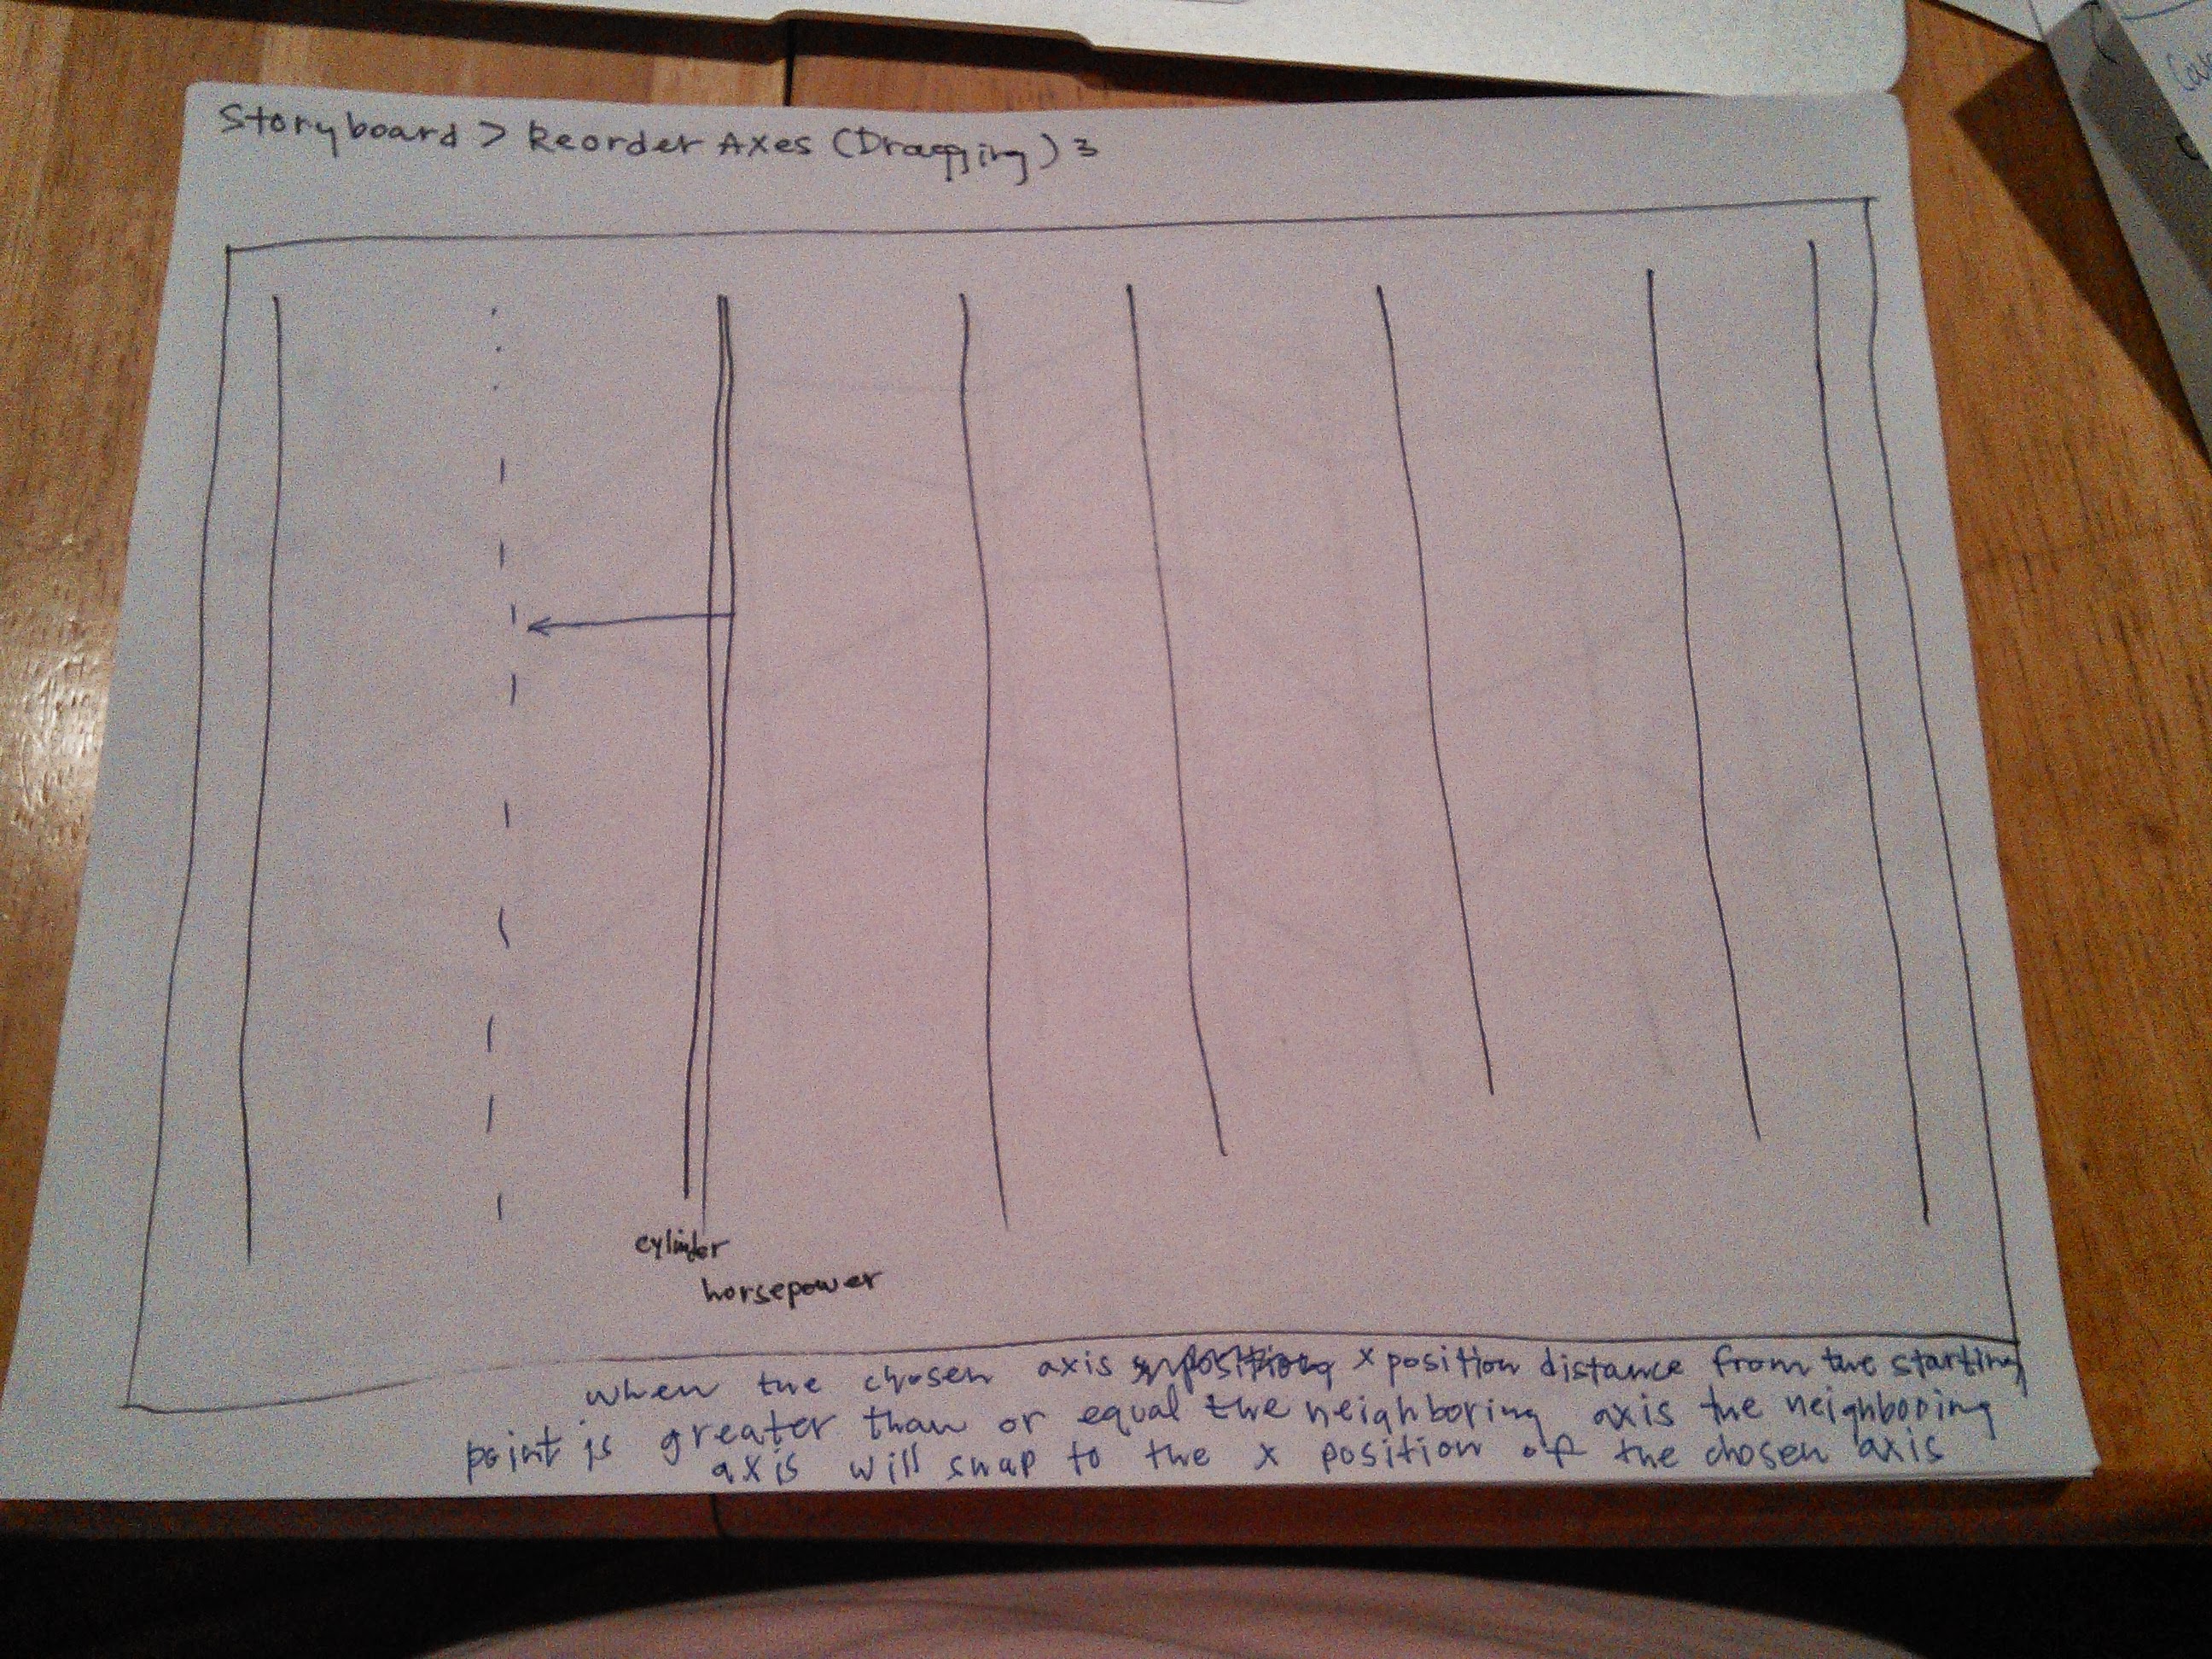 Storyboard > Reorder Axes (Dragging) 3
cylinder
horsepower
when the chosen axis x position distance from the starting
point is greater than or equal the neighboring axis the neighboring
axis will snap to the x position of the chosen axis